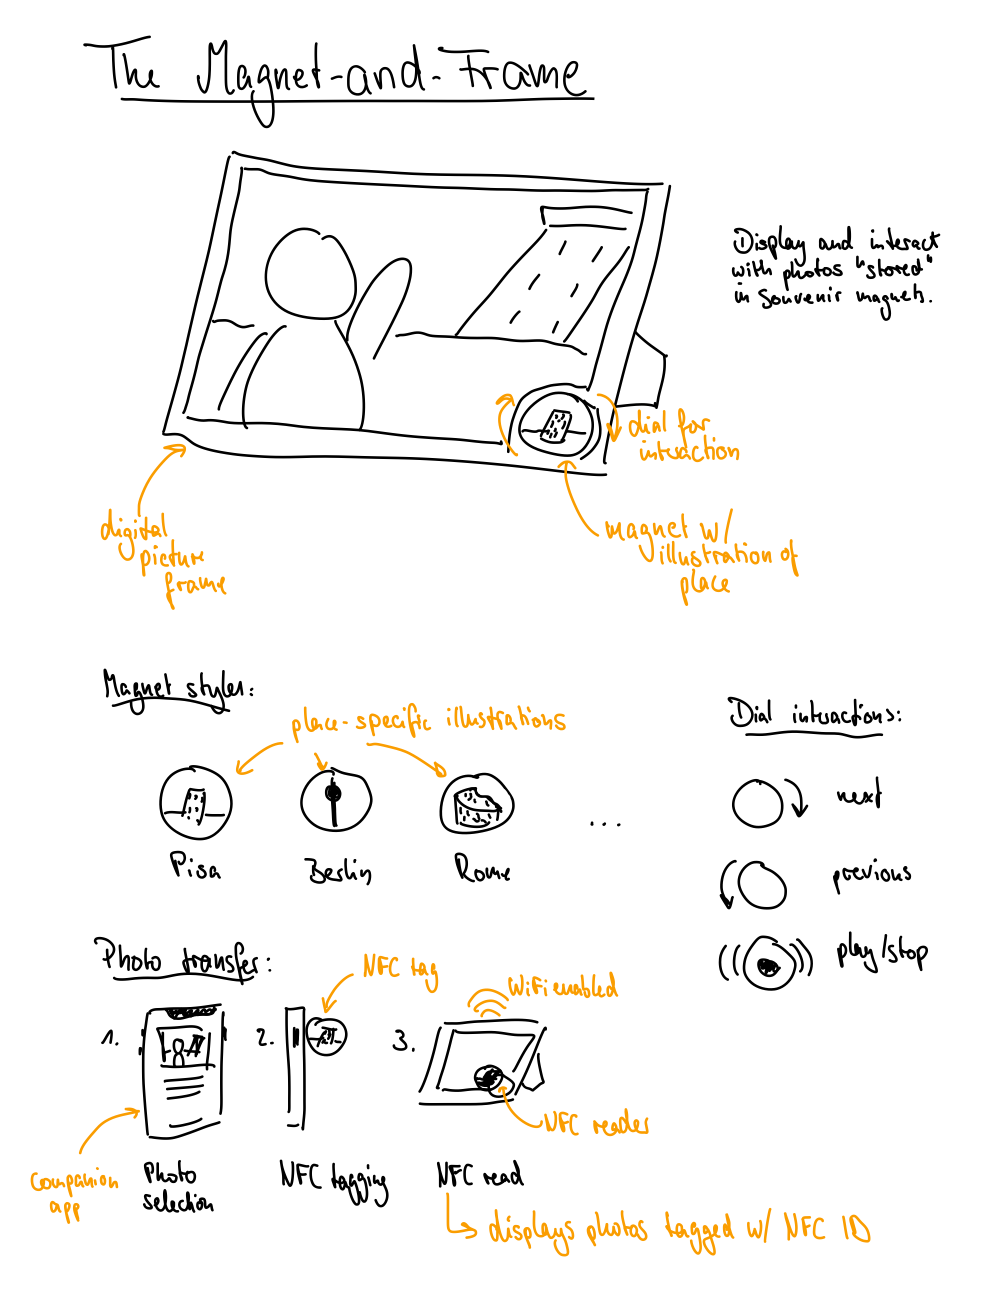 The Magnet-and-Frame
Display and interact
with photos "stored"
in souvenir magnets.
dial for
interaction
digital
picture
frame
magnet w/
illustration of
place
Magnet styles:
place-specific illustrations
Pisa
Berlin
Rome
...
Dial interactions:
next
previous
play/stop
Photo transfer:
NFC tag
WiFi enabled
1.
2.
3.
NFC reader
companion
app
Photo
selection
NFC tagging
NFC read
displays photos tagged w/ NFC ID